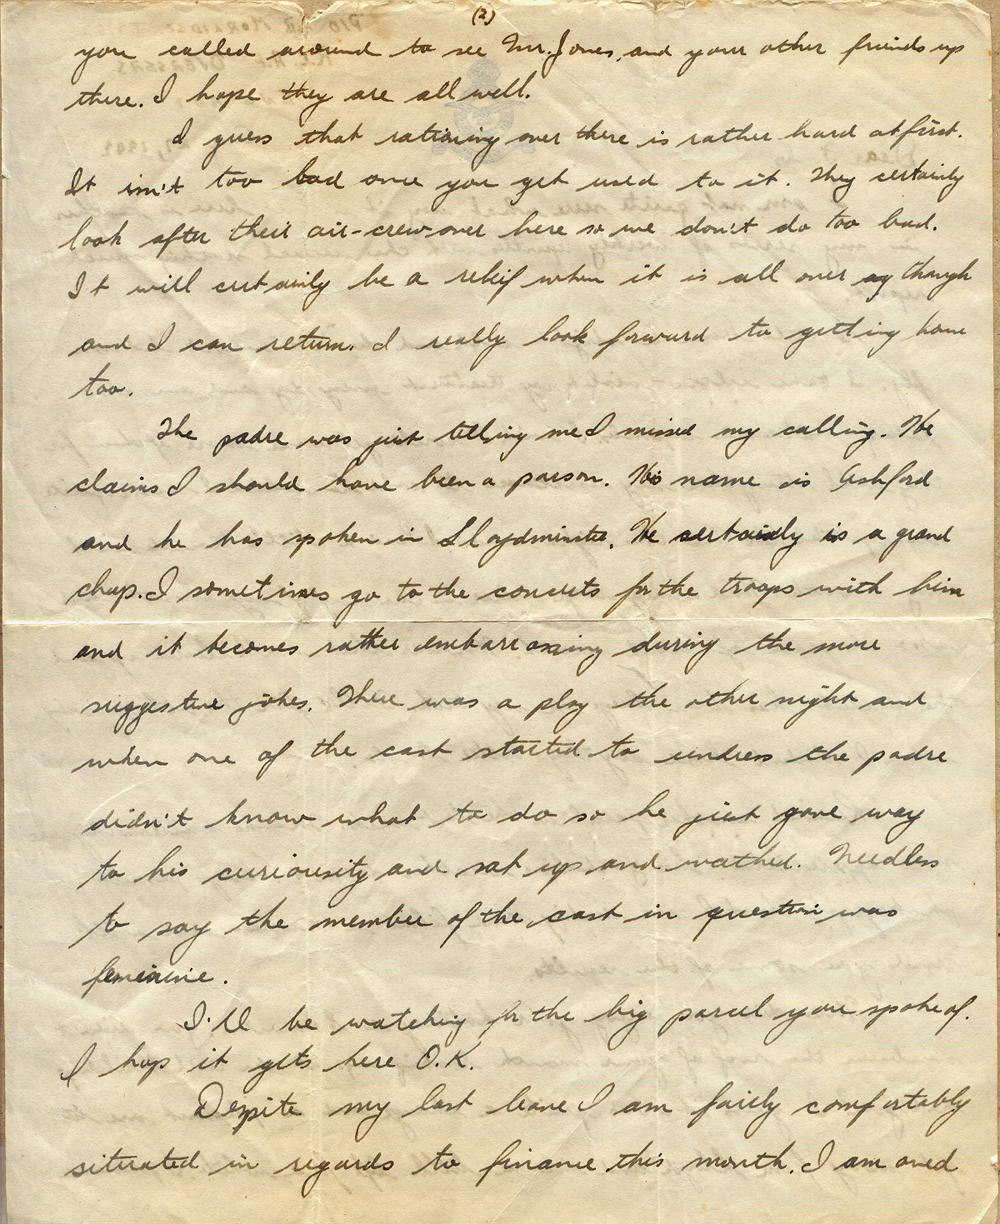 (2)
you called around to see Mr. Jones, and your other friends up
there. I hope they are all well.
I guess that rationing over there is rather hard at first.
It isn't too bad once you get used to it. They certainly
look after their air-crew over here so we don't do too bad.
It will certainly be a relief when it is all over though
and I can return. I really look forward to getting home
too.
The padre was just telling me I missed my calling. He
claims I should have been a parson. His name is Ashford
and he has spoken in Lloydminster. He certainly is a grand
chap. I sometimes go to the concerts for the troops with him
and it becomes rather embarrassing during the more
suggestive jokes. There was a play the other night and
when one of the cast started to undress the padre
didn't know what to do so he just gave way
to his curiousity and sat up and wathed. Needless
to say the member of the cast in question was
feminine.
I'll be watching for the big parcel you spoke of.
I hop it gets here O.K.
Despite my last leave I am fairly comfortably
situated in regards to finance this month. I am owed